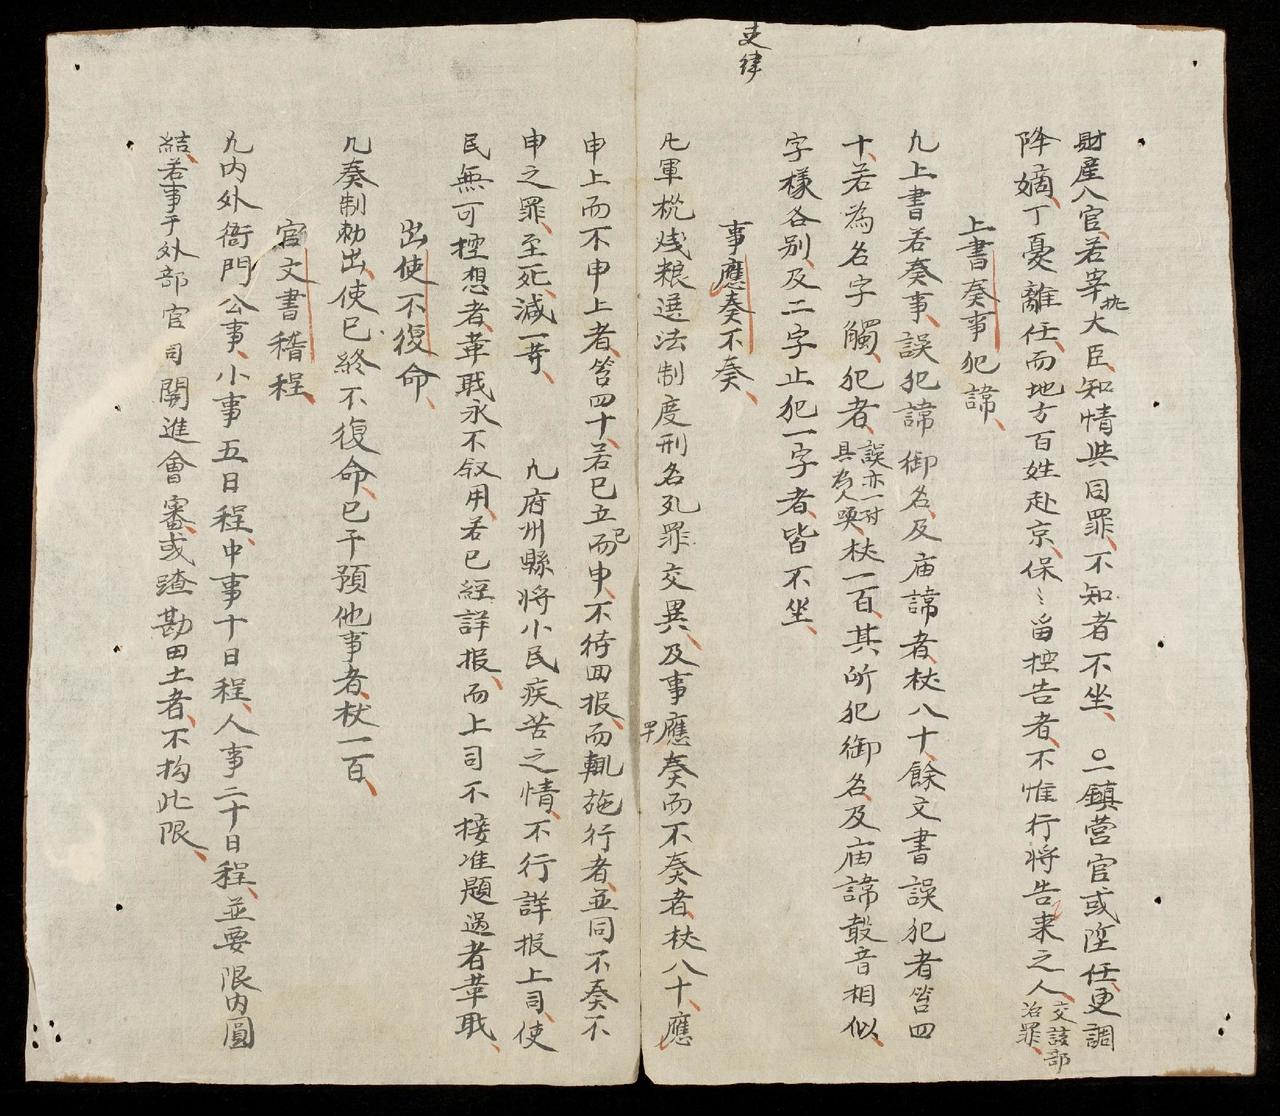 吏律
財産入官、若宰执大臣、知情與同罪、不知者不坐、○一鎮营官或陞任、更調
降嫡、丁憂離任、而地方百姓赴京、保〻畄控告者、不惟行将告来之人、交該部治罪、
上書奏事犯諱、
凢上書若奏事、誤犯諱御名、及庙諱者、杖八十、餘文書誤犯者笞四
十、若為名字觸、犯者、誤亦一付具為人喚、杖一百、其所犯御名及庙諱聲音相似、
字樣各别、及二字止犯一字者、皆不坐、
事應奏不奏、
凢軍機錢粮選法制度刑名死罪交異、及事應奏而不奏者、杖八十、應
申上而不申上者、笞四十、若已立已而申、不待回报、而輒施行者、並同不奏不
申之罪、至死、减一䓁、 凢府州縣将小民疾苦之情、不行詳报上司、使
民無可控想者、革戢永不叙用、若已經詳报、而上司不接准題過者革戢、
出使不復命、
凢奏制勅出、使已終不復命、已干預他事者、杖一百、
官文書稽程、
凢内外衙門公事、小事五日程、中事十日程、人事二十日程、並要限内圓
結、若事于外部官司開進會審、或踏勘田土者、不构此限、